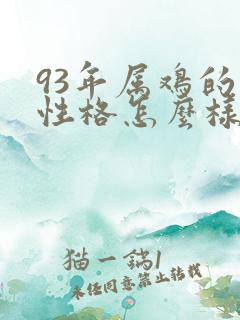 93年属鸡的
性格怎麽样
猫一锅1
未经同意禁止转载